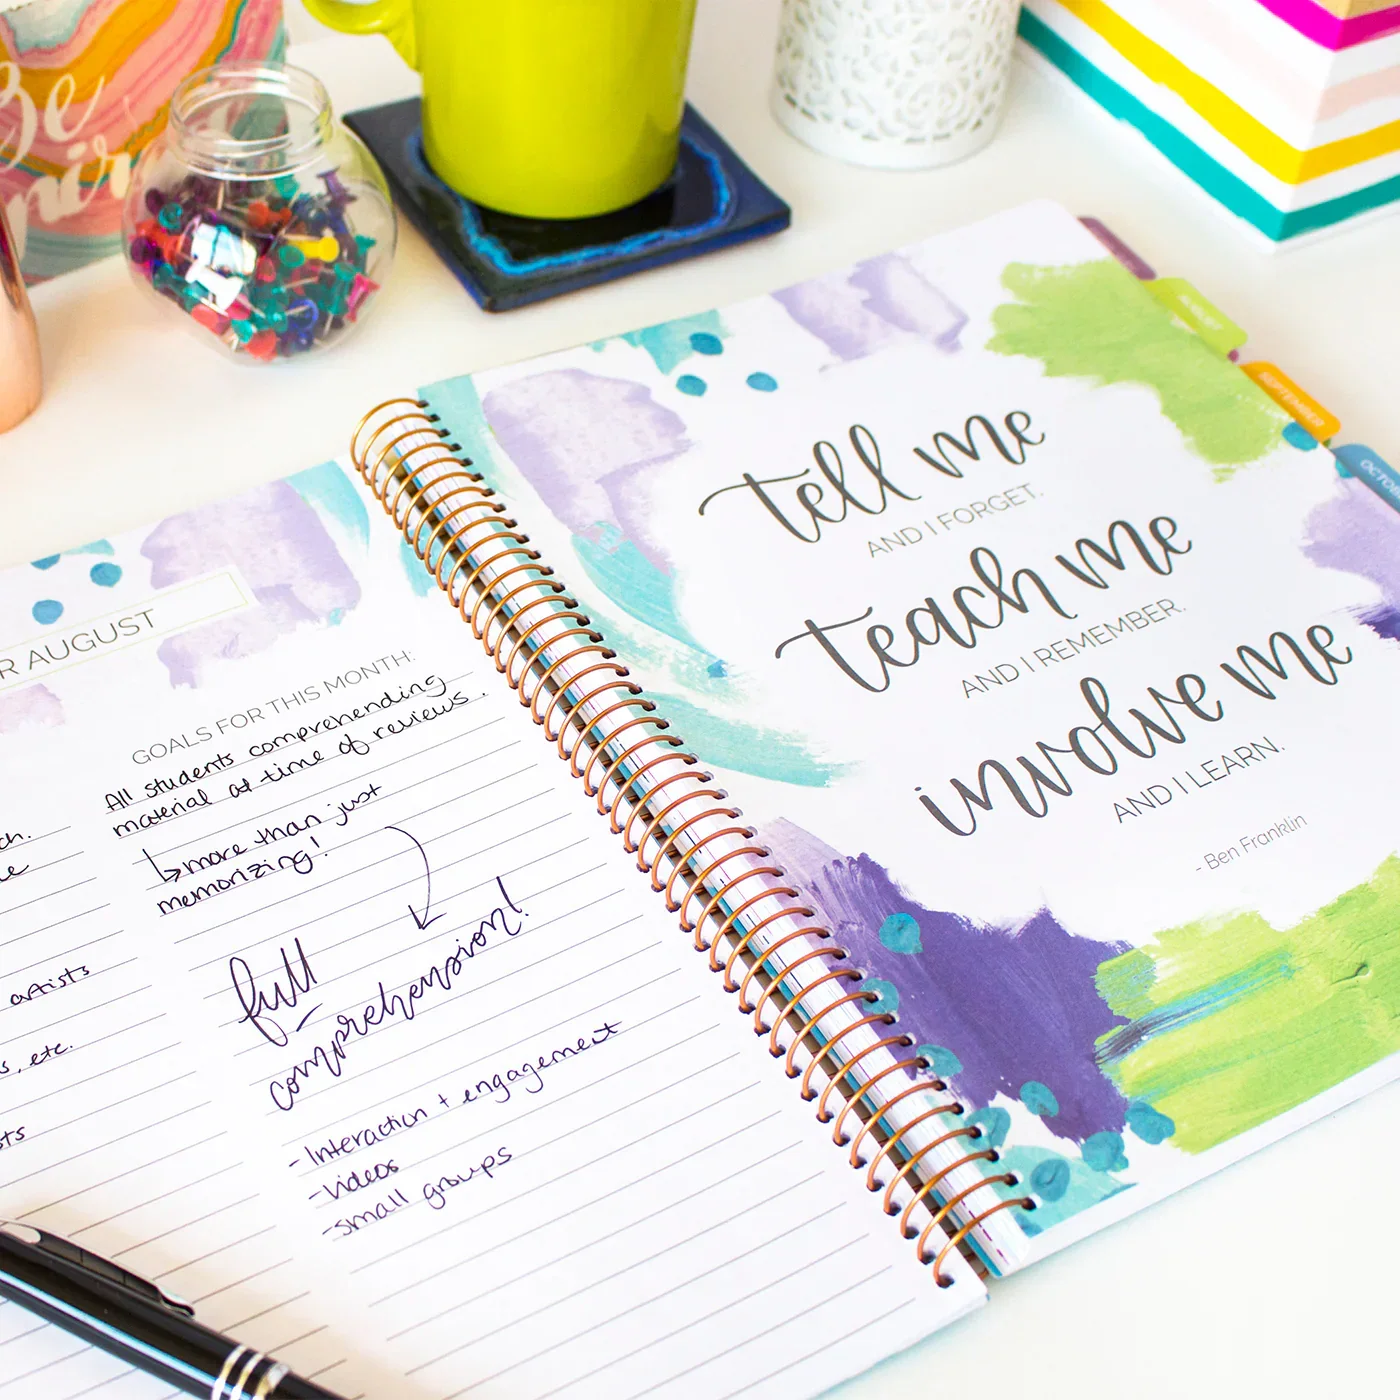 Be
R AUGUST
GOALS FOR THIS MONTH:
All students comprehending
material at time of reviews.
↳more than just
memorizing!
full
comprehension!
- Interaction + engagement
- videos
- small groups
ch.
artists
s, etc.
sts
tell me
AND I FORGET.
teach me
AND I REMEMBER.
involve me
AND I LEARN.
- Ben Franklin
AUGUST
SEPTEMBER
OCTOB